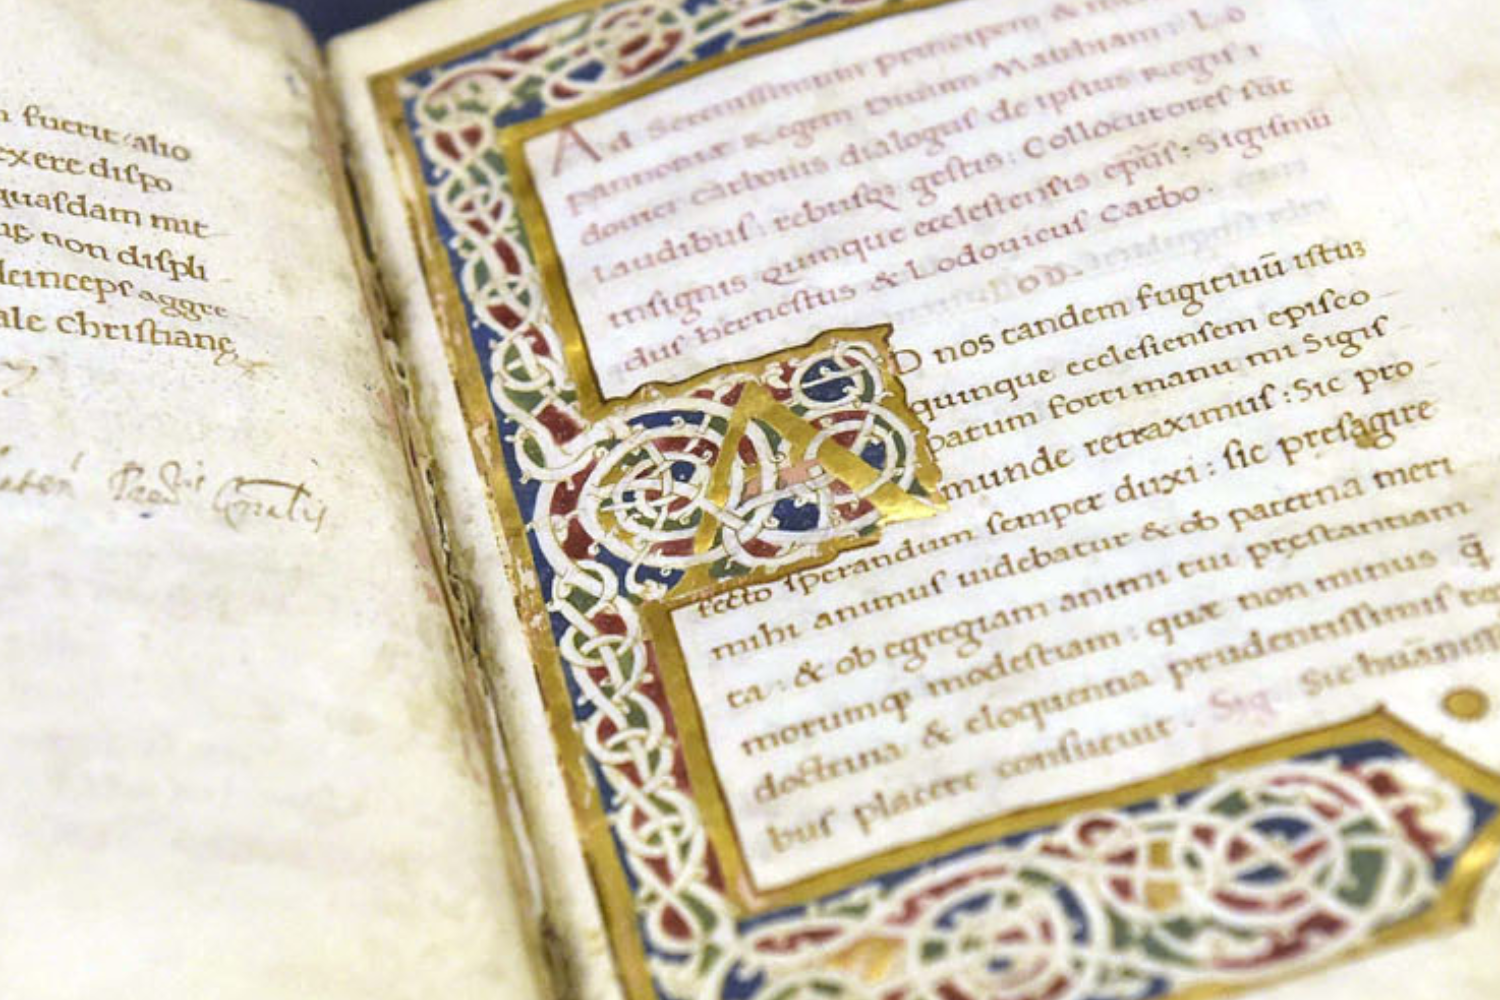 n fuerit alio
exere dispo
quasdam mit
ꝙ non displi
deinceps aggre
ale christianę
Ad Serenissimum principem &
pannoniæ Regem Diuum Mathiam Lo
douici carbonis dialogus de ipsius Regis
laudibus rebusq; gestis: Collocutores sūt
insignis quinque ecclesiensis ep̄us: Sigismū
dus hernestus & Lodouicus Carbo.
AD nos tandem fugitiuū istuz
quinque ecclesiensem episco
patum forti manu mi Sigis
munde retraximus: Sic pro
fecto sperandum semper duxi: sic presagire
mihi animus uidebatur & ob paterna meri
ta: & ob egregiam animi tui prestantiam
morumq; modestiam: quæ non minus q̄
doctrina & eloquentia prudentissimis
bus placere consueuit. Sig. Sic